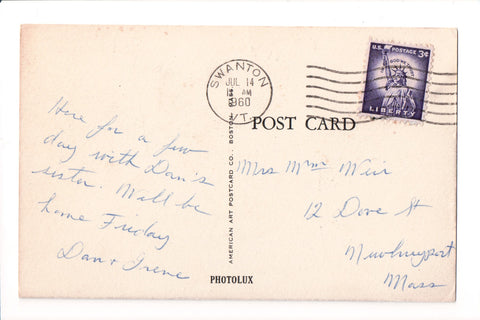 SWANTON
JUL 14
AM
1960
VT.
U.S. POSTAGE 3¢
IN GOD WE TRUST
LIBERTY
POST CARD
Here for a few
day with Dan's
sister. Will be
home Friday
Dan + Irene
AMERICAN ART POSTCARD CO., BOSTON
PHOTOLUX
Mrs Mm Weir
12 Dove St
Newburyport
Mass